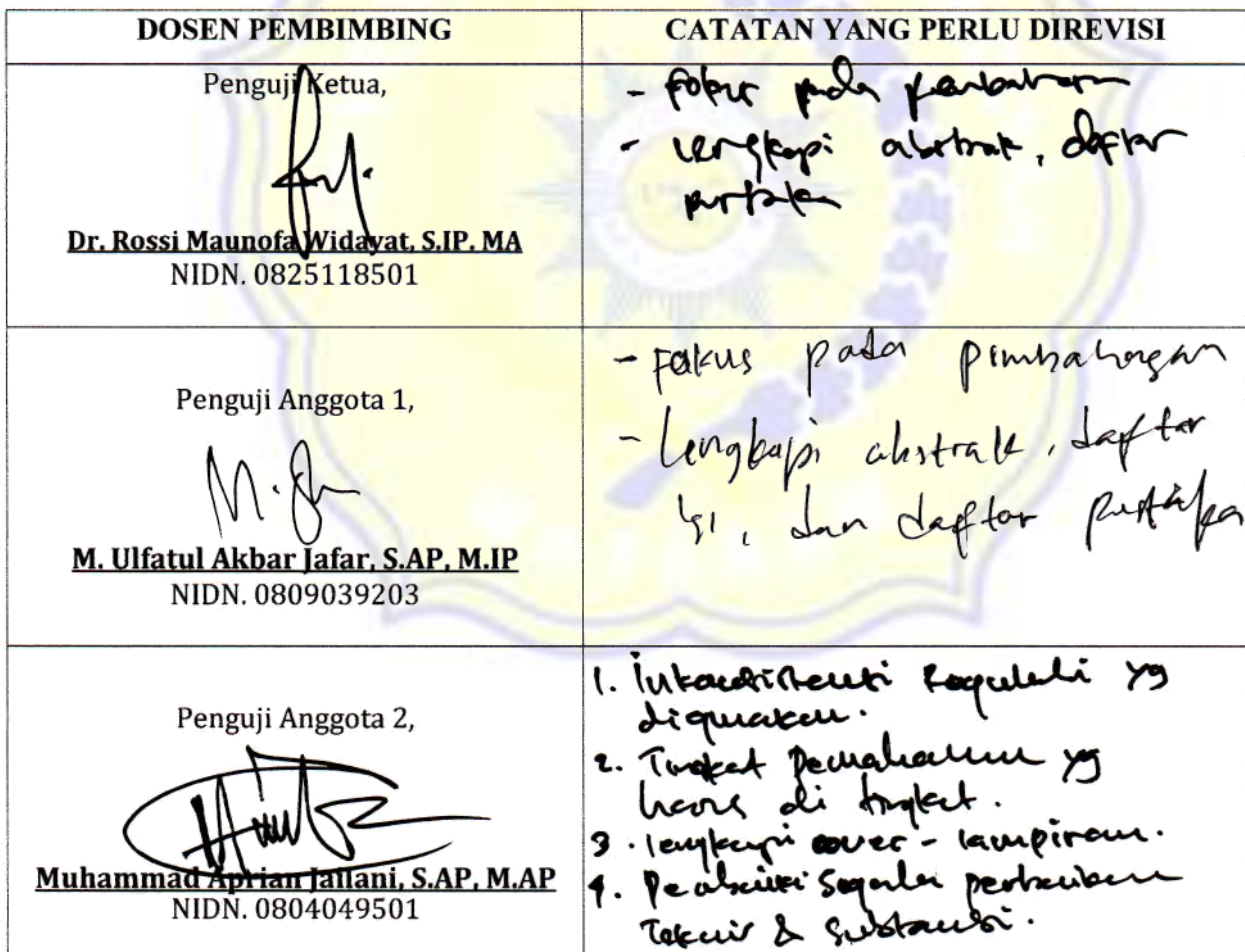 DOSEN PEMBIMBING
CATATAN YANG PERLU DIREVISI
Penguji Ketua,
Dr. Rossi Maunofa Widayat, S.IP. MA
NIDN. 0825118501
- Fokus pada pembahasan
- lengkapi abstrak, daftar
pustaka
Penguji Anggota 1,
M. Ulfatul Akbar Jafar, S.AP, M.IP
NIDN. 0809039203
- Fokus pada pembahasan
- Lengkapi abstrak, daftar
isi, dan daftar pustaka
Penguji Anggota 2,
Muhammad Aprian Jailani, S.AP, M.AP
NIDN. 0804049501
1. Inkonsistensi regulasi yg
digunakan.
2. Tingkat pemahaman yg
harus di tingkat.
3. lengkapi cover - lampiran.
4. segala perbaikan
Teknis & Substansi.